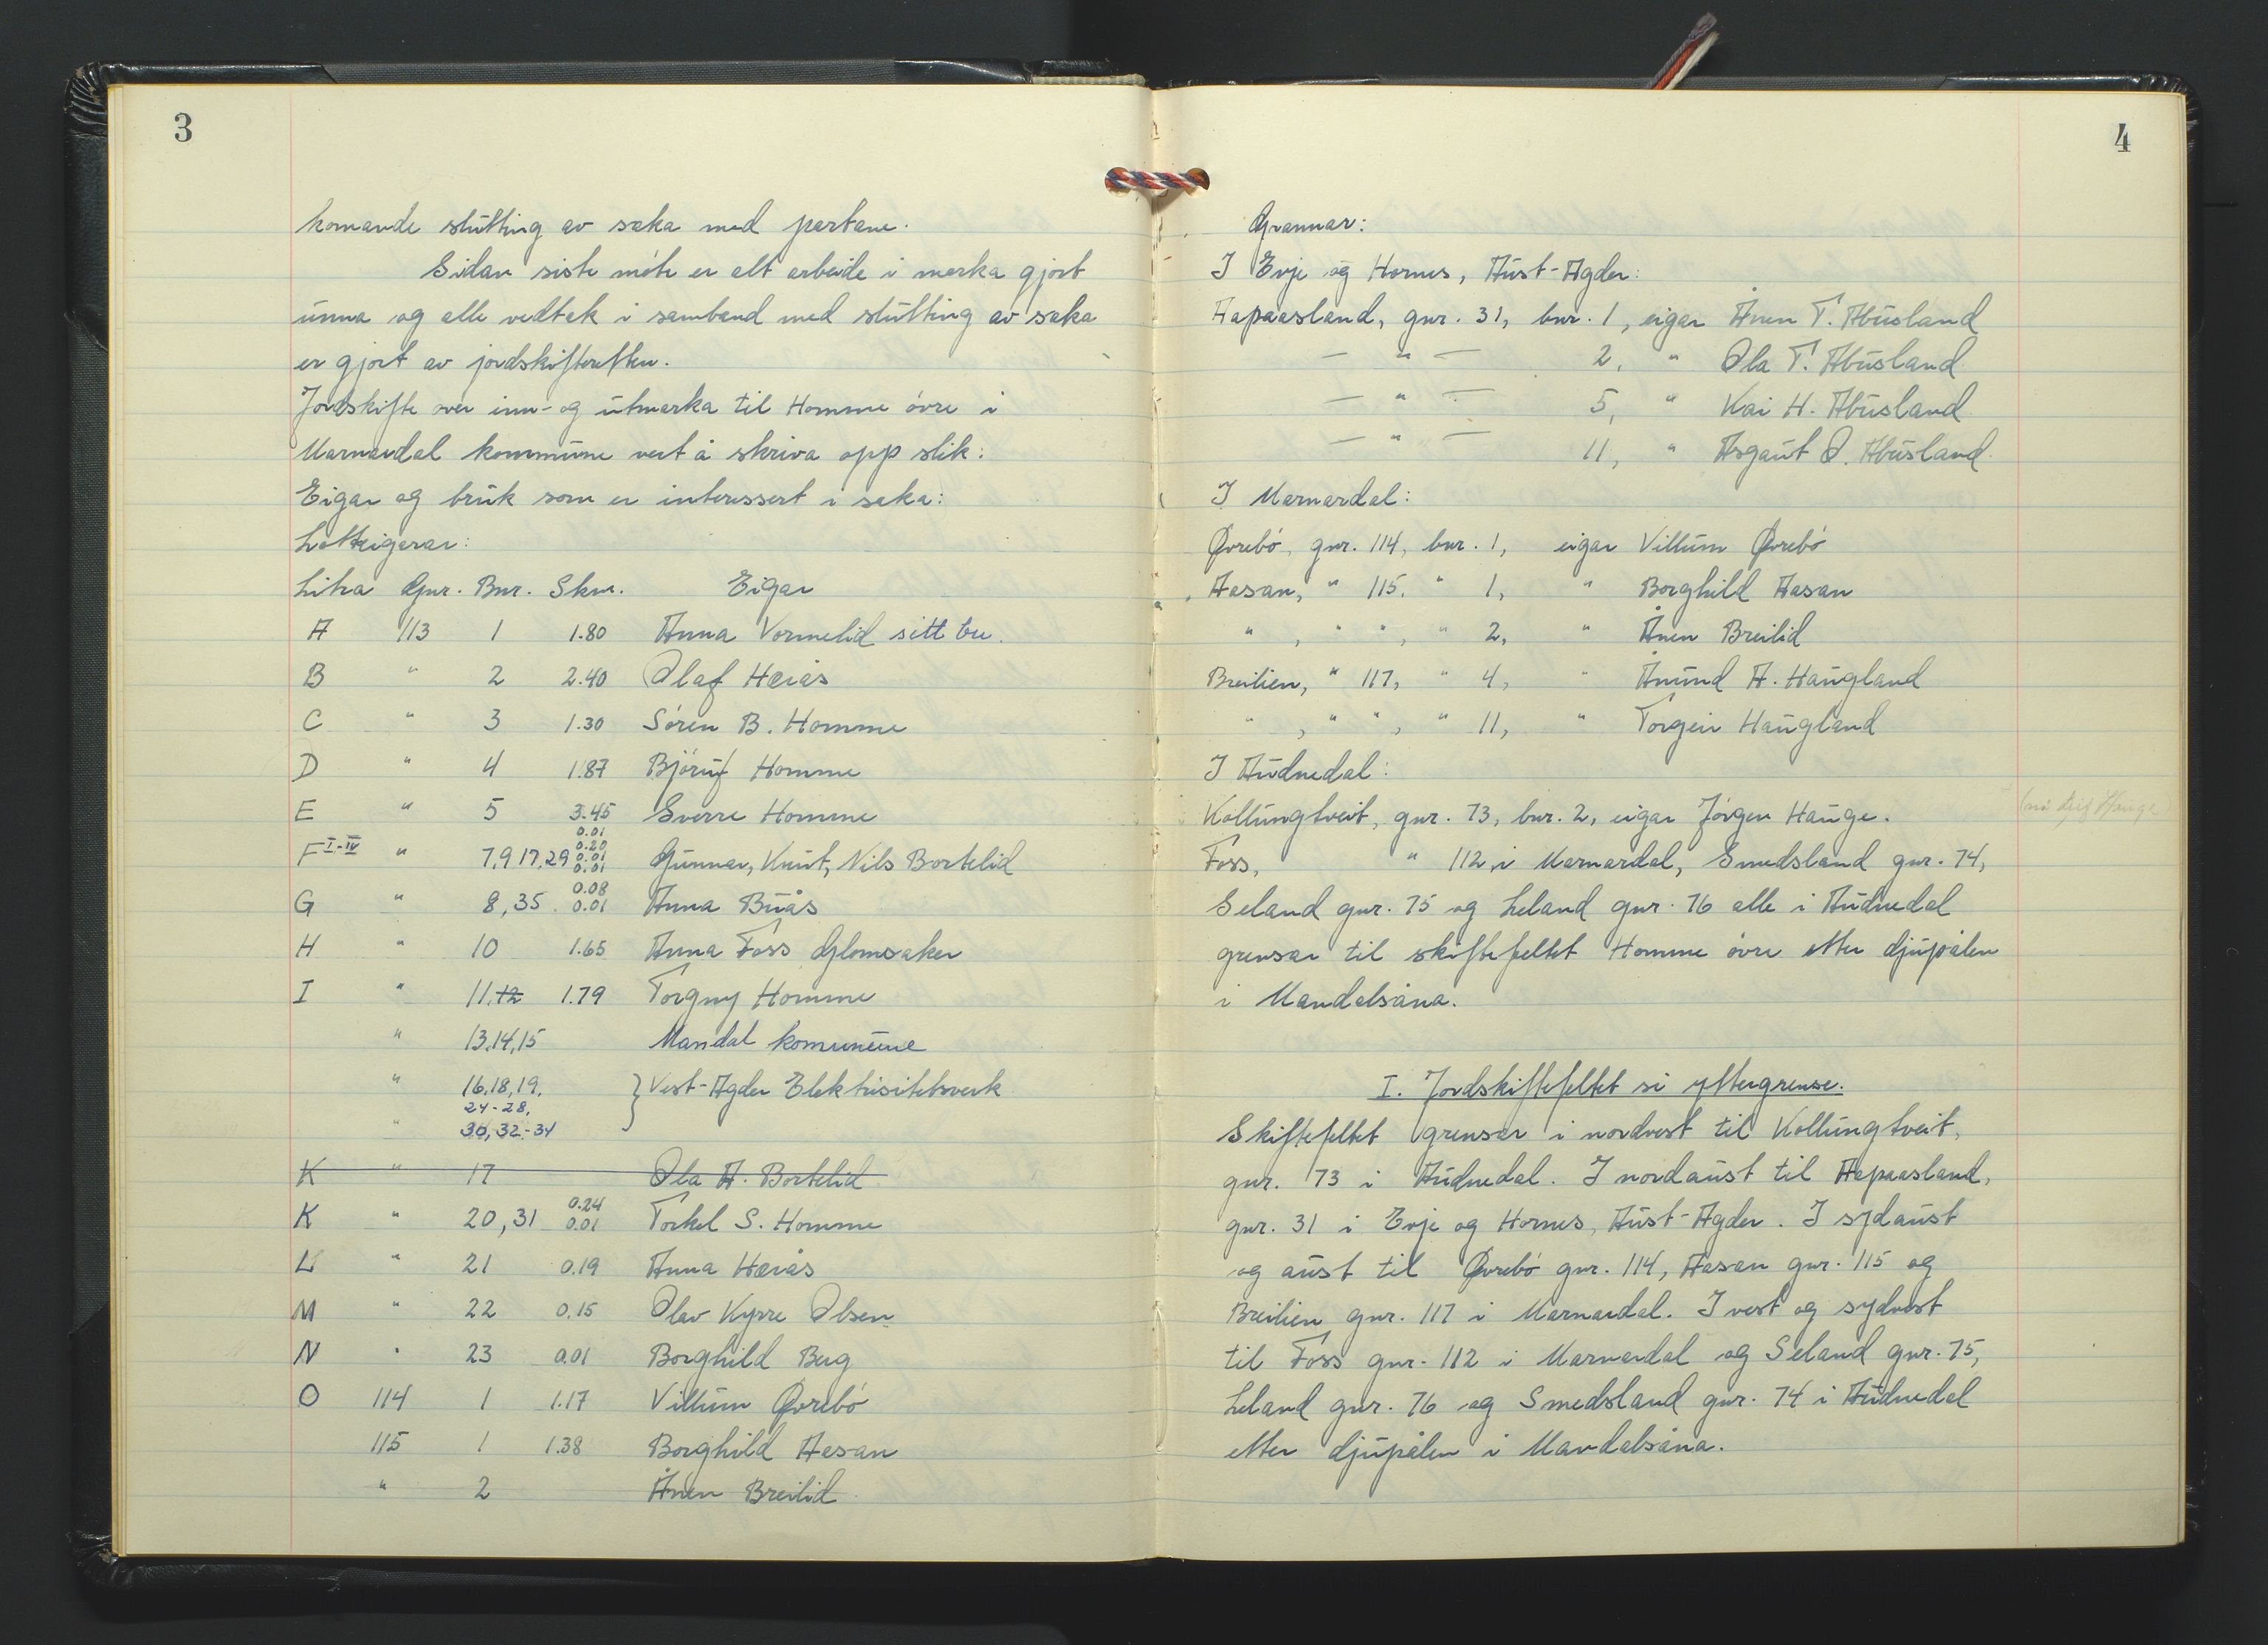 3
komande slutting av saka med partane.
Sidan siste møte er alt arbeide i marka gjort
unna og alle vedtak i samband med slutting av saka
er gjort av jordskifteretten.
Jordskifte over inn- og utmarka til Homme øvre i
Marnardal kommune vert å skriva opp slik:
Eigar og bruk som er interessert i saka:
Lotteigarar:
Litra Gnr. Bnr. Skm. Eigar
A 113 1 1.80 Anna Vormelid sitt bu.
B " 2 2.40 Olaf Høiås
C " 3 1.30 Søren B. Homme
D " 4 1.87 Bjørulf Homme
E " 5 3.45 Sverre Homme
F I-IV " 7,9,17,29 0.01 0.20 0.01 0.01 Gunnar, Knut, Nils Bortelid
G " 8,35 0.08 0.01 Anna Buås
H " 10 1.65 Anna Foss Glomsaker
I " 11,12 1.79 Torgny Homme
" 13,14,15 Mandal kommune
" 16,18,19, } Vest-Agder Elektrisitetsverk
24-28,
" 30,32-34
K " 17 Ola A. Bortelid
K " 20,31 0.24 0.01 Torkel S. Homme
L " 21 0.19 Anna Høiås
M " 22 0.15 Olav Kyrre Olsen
N " 23 0.01 Borghild Berg
O 114 1 1.17 Villum Øvrebø
115 1 1.38 Borghild Aasan
" 2 Ånen Breilid
4
Grannar:
I Evje og Hornes, Aust-Agder:
Aapaasland, gnr. 31, bnr. 1, eigar Ånen T. Abusland
— " — 2, " Ola T. Abusland
— " — 5, " Kai H. Abusland
— " — 11, " Asgaut O. Abusland.
I Marnardal:
Øvrebø, gnr. 114, bnr. 1, eigar Villum Øvrebø
Aasan, " 115, " 1, " Borghild Aasan
" , " " , " 2, " Ånen Breilid
Breilien, " 117, " 4, " Ånund A. Haugland
" , " " , " 11, " Torgeir Haugland
I Audnedal:
Kollungtveit, gnr. 73, bnr. 2, eigar Jørgen Hauge.
Foss, " 112, i Marnardal, Smedsland gnr. 74,
Seland gnr. 75 og Leland gnr. 76 alle i Audnedal
grensar til skiftefeltet Homme øvre etter djupålen
i Mandalsåna.
I. Jordskiftefeltet si yttergrense.
Skiftefeltet grensar i nordvest til Kollungtveit,
gnr. 73 i Audnedal. I nordaust til Aapaasland,
gnr. 31 i Evje og Hornes, Aust-Agder. I sydaust
og aust til Øvrebø gnr. 114, Aasan gnr. 115 og
Breilien gnr. 117 i Marnardal. I vest og sydvest
til Foss gnr. 112 i Marnardal og Seland gnr. 75,
Leland gnr. 76 og Smedsland gnr. 74 i Audnedal
etter djupålen i Mandalsåna.